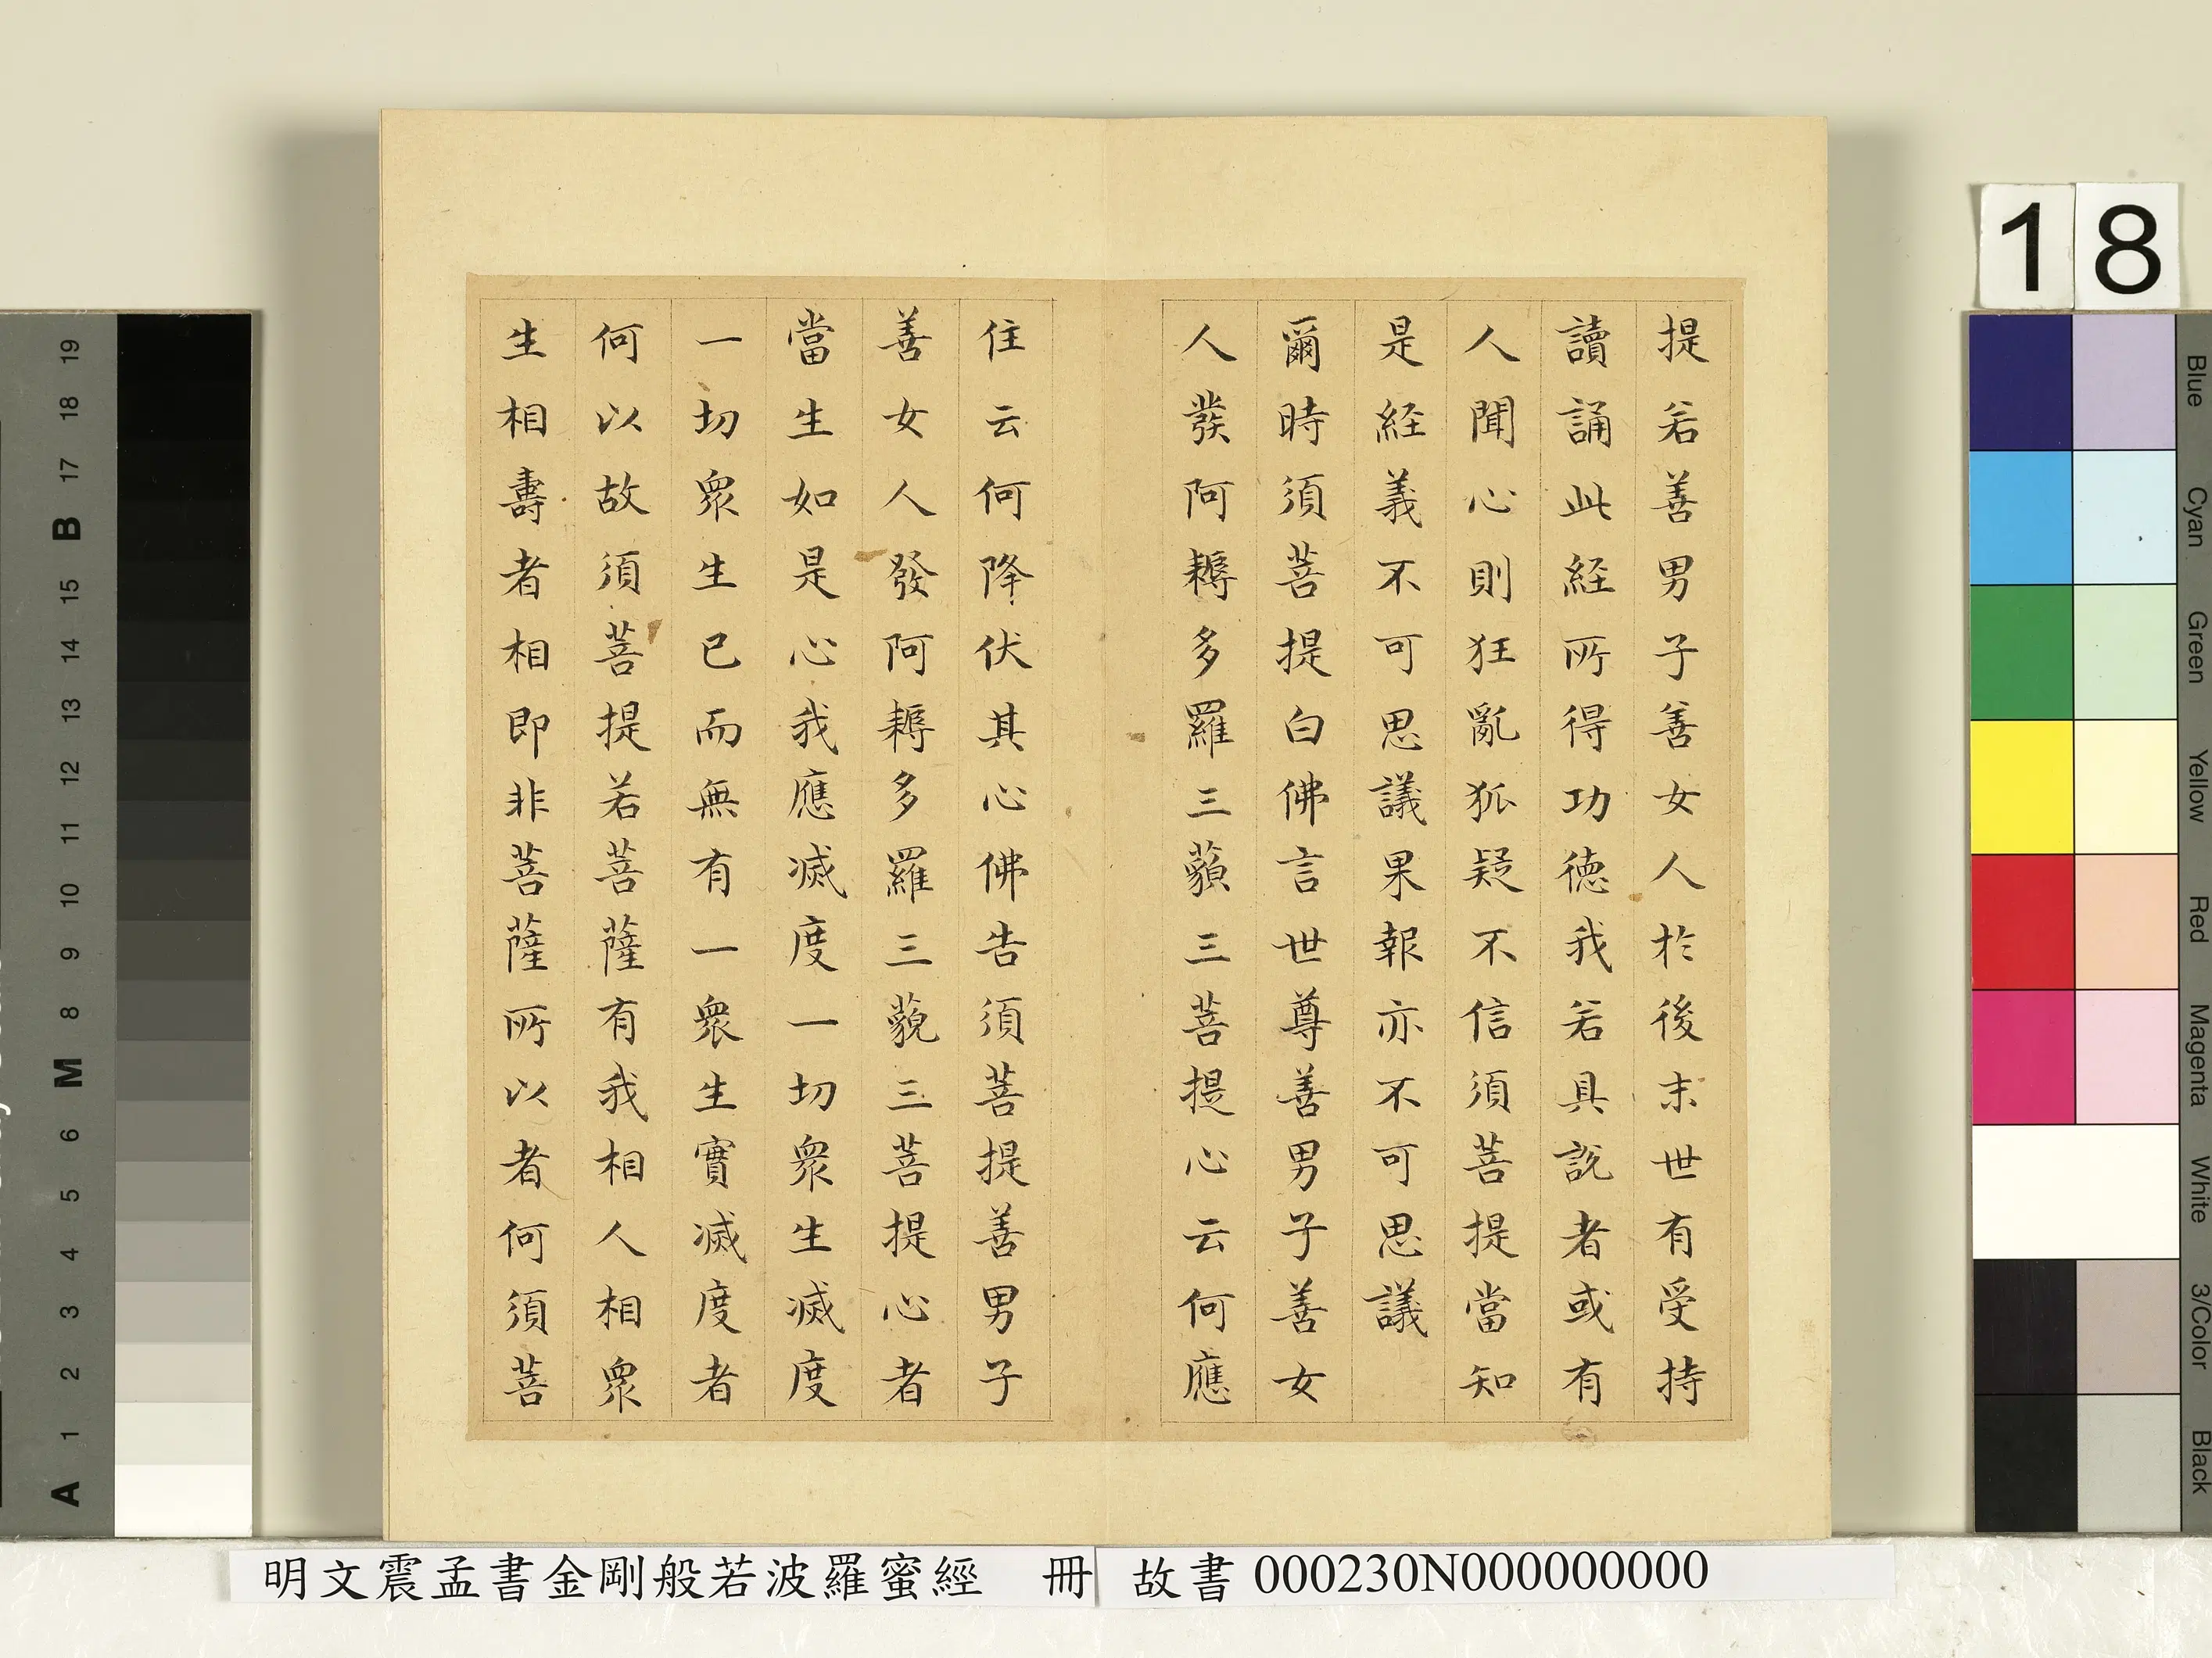 提若善男子善女人於後末世有受持
讀誦此経所得功德我若具說者或有
人聞心則狂亂狐疑不信須菩提當知
是経義不可思議果報亦不可思議
爾時須菩提白佛言世尊善男子善女
人發阿耨多羅三藐三菩提心云何應
住云何降伏其心佛告須菩提善男子
善女人發阿耨多羅三藐三菩提心者
當生如是心我應滅度一切衆生滅度
一切衆生已而無有一衆生實滅度者
何以故須菩提若菩薩有我相人相衆
生相壽者相即非菩薩所以者何須菩
明文震孟書金剛般若波羅蜜經 冊 故書 000230N000000000
18
19
18
17
B
15
14
13
12
11
10
9
8
M
6
5
4
3
2
1
A
Blue
Cyan
Green
Yellow
Red
Magenta
White
3/Color
Black